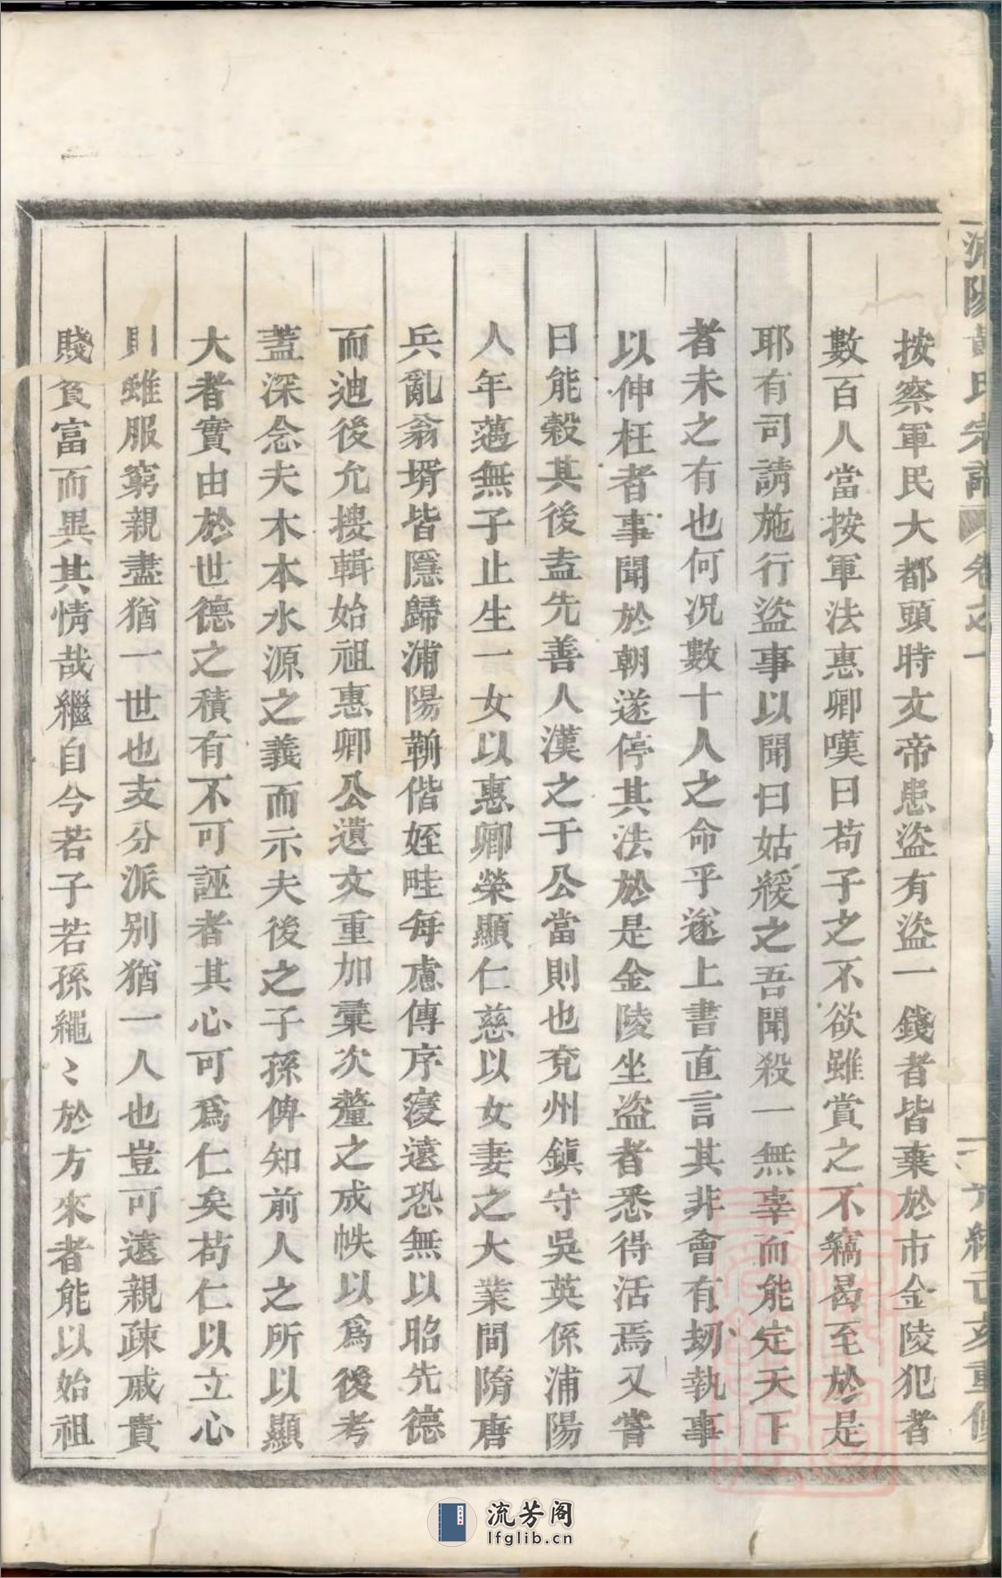 按察軍民大都頭時文帝患盜有盜一錢者皆棄於市金陵犯者
數百人當按軍法惠卿嘆曰苟子之不欲雖賞之不竊曷至於是
耶有司請施行盜事以聞曰姑緩之吾聞殺一無辜而能定天下
者未之有也何况數十人之命乎遂上書直言其非會有刼執事
以伸枉者事聞於朝遂停其法於是金陵坐盜者悉得活焉又嘗
曰能穀其後盍先善人漢之于公當則也兗州鎮守吳英係浦陽
人年邁無子止生一女以惠卿榮顯仁慈以女妻之大業間隋唐
兵亂翁壻皆隱歸浦陽勒偕姪畦每慮傳序寖遠恐無以昭先德
而迪後允摟輯始祖惠卿公遺文重加彚次釐之成帙以爲後考
蓋深念夫木本水源之義而示夫後之子孫俾知前人之所以顯
大者實由於世德之積有不可誣者其心可爲仁矣苟仁以立心
則雖服窮親盡猶一世也支分派别猶一人也豈可遠親疎戚貴
賤貧富而異其情哉繼自今若子若孫繩〻於方來者能以始祖
氏宗譜 卷之一
亥重修
流芳阁
lfglib.cn